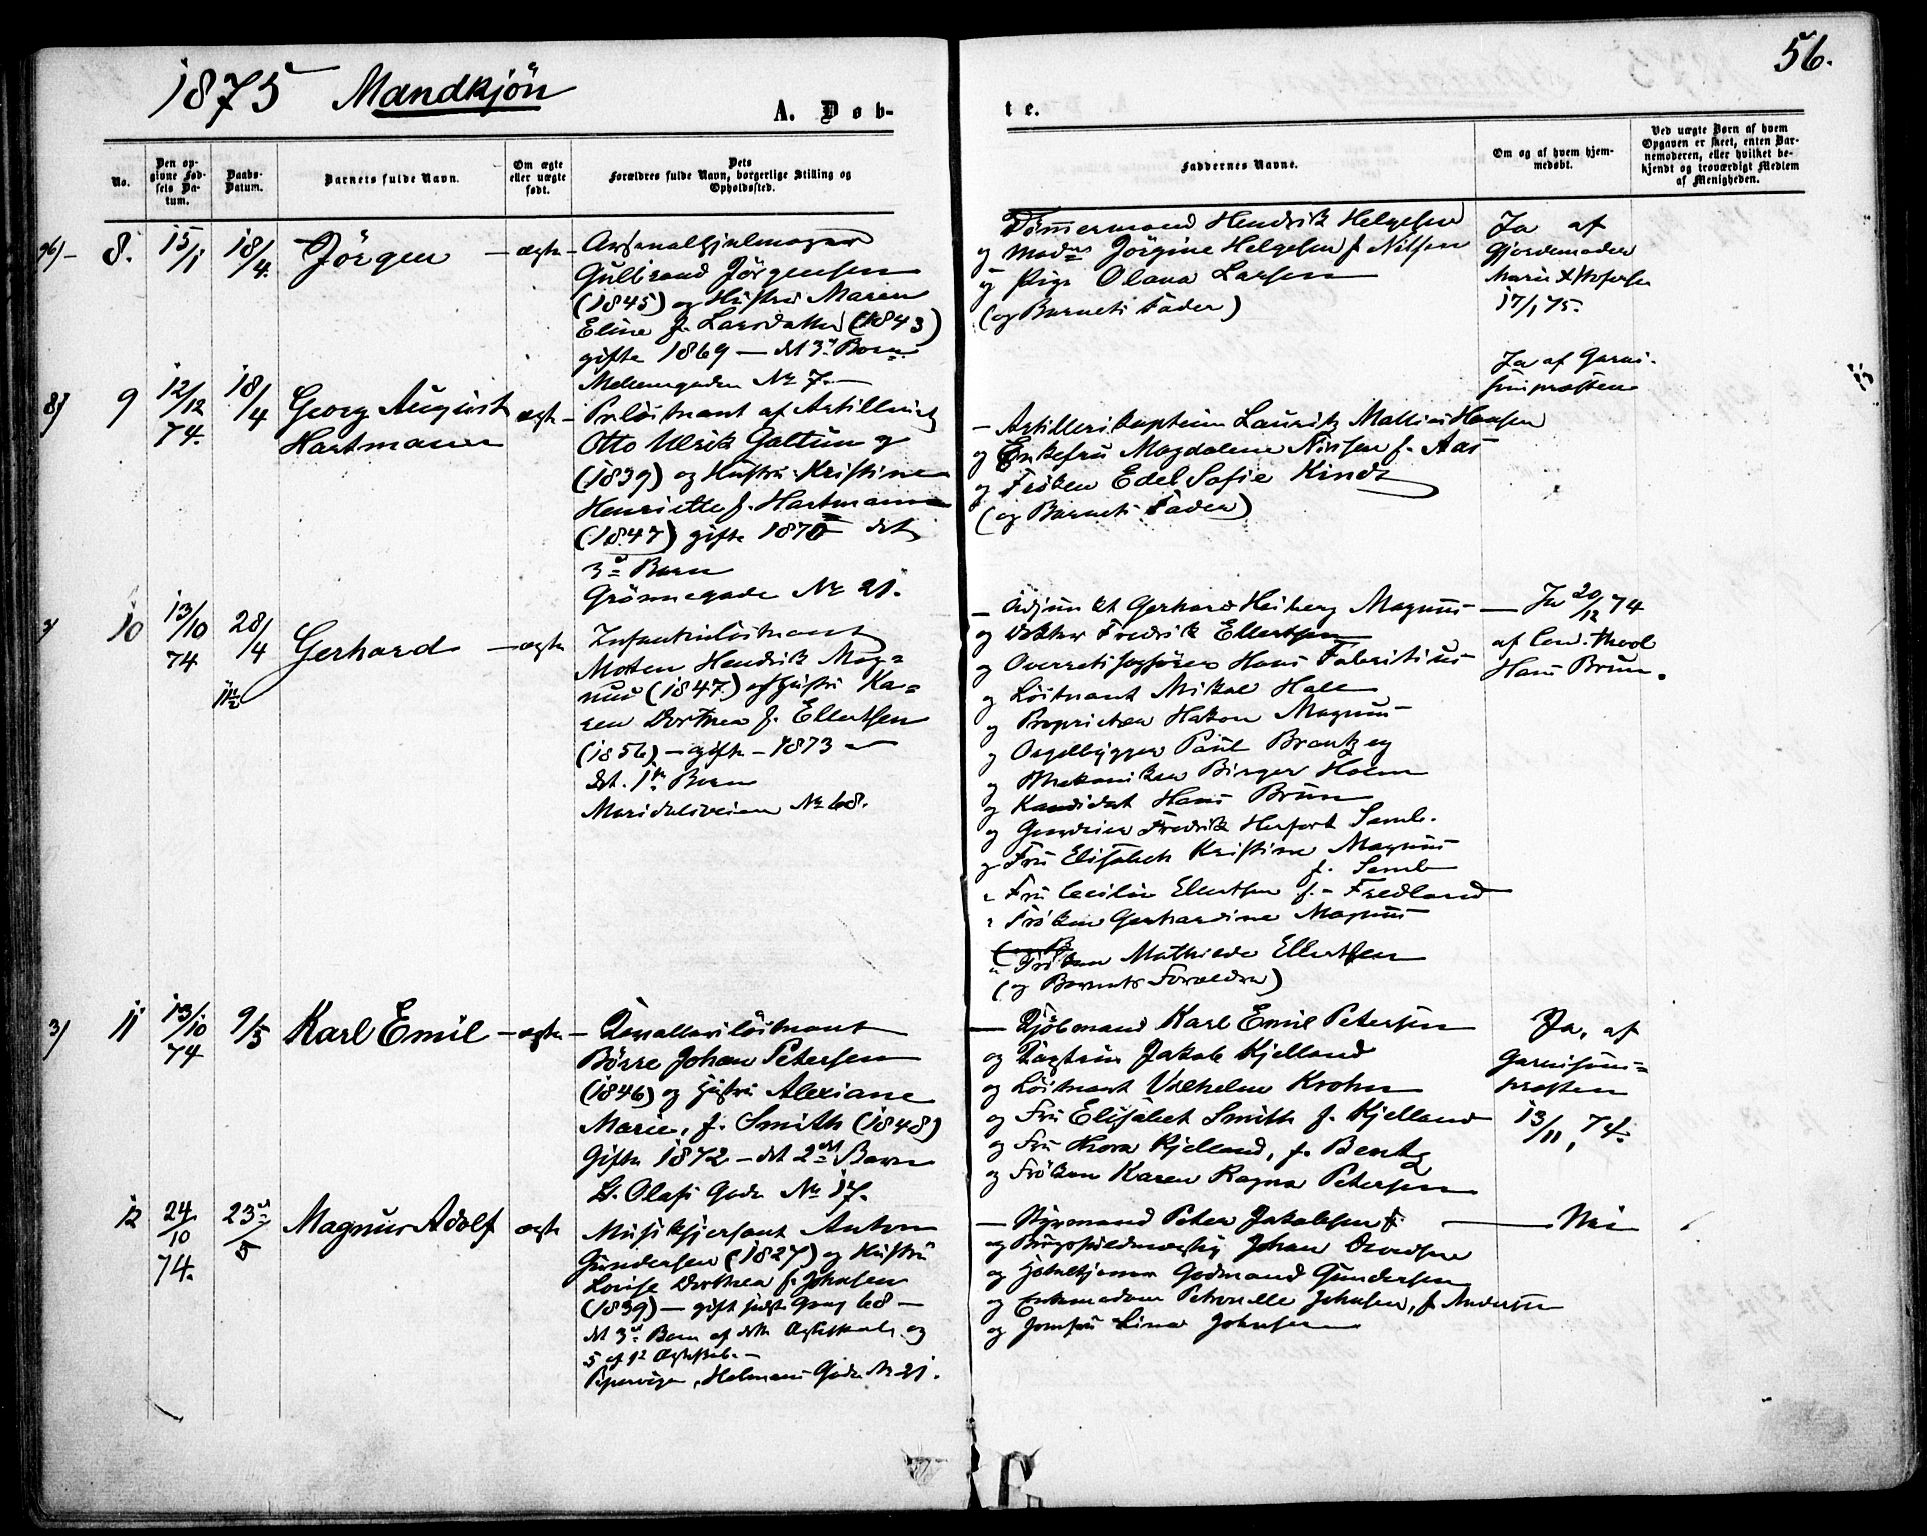 56.
1875 Mandkjön
A. Døb-
te.
No.
Den op-
givne Fød-
sels Da-
tum.
Daabs-
Datum.
Barnets fulde Navn.
Om ægte
eller uægte
født.
Dets
Forældres fulde Navn, borgerlige Stilling og
Opholdssted.
Faddernes Navne.
Om og af hvem hjem-
medøbt.
Ved uægte Børn af hvem
Opgaven er skeet, enten Bar-
nemoderen, eller hvilket be-
kjendt og troværdigt Medlem
af Menigheden.
8.
15/1
18/4.
Jörgen
ægte
Gulbrand Jörgensen
(1845) og Hustru Maren
Eline f. Larsdatter (1843)
gifte 1869 — det 3die Barn
Möllergaden No 7.
Tömmermand Hendrik Helgesen
og Mad. Jörgine Helgesen f. Nilsen
og Pige Olana Larsen
(og Barnets Fader)
Ja af
Gjordemoder
Marie
17/1 75.
9
12/12
74.
18/4
Georg August
Hartmann
ægte
Prlöitnant af Artilleriet
Otto Ulrik
(1839) og Hustru Kristine
Henriette f. Hartmann
(1847) gifte 1870 det
3die Barn
Grönnegade No 21.
— Artillerikaptein Lauritz Mathias Hansen
og Enkefru Magdalene Nilsen f. Aas
og Fröken Edel Sofie Kindt
(og Barnets Fader)
Ja af Garni-
sonspræsten
10
13/10
74
28/4
Gerhard
ægte
Infanterilöitnant
Morten Hendrik Mag-
nus (1847) og Hustru Ka-
ren Dorthea f. Ellertsen
(1856) — gifte — 1873
det 1ste Barn
Maridalsveien No 68.
— Adjunkt Gerhard Heiberg Magnus
og Doktor Fredrik Ellertsen
og Overretssagförer Hans Fabritius
og Löitnant Mikal
og Proprietær Hakon Magnus
og Orgelbygger Paul Brantzeg
og Mekaniker Birger Holm
og Kandidat Hans Brun
og Fredrik Herfort Semb.
og Fru Elisabeth Kristine Magnus
f. Semb
Fru Cecilie Ellertsen f. Fredland
Fröken Gerhardine Magnus
Fröken Mathilde Ellertsen
(og Barnets Forældre)
Ja 20/12 74
af Cand. theol
Hans Brun.
11
13/10
74
9/5
Karl Emil
ægte
Kavallerilöitnant
Börre Johan Petersen
(1846) og Hustru Alexiane
Marie, f. Smith (1848)
Gifte 1872 — det 2det Barn
St. Olafs Gade No 17.
— Kjöbmand Karl Emil Petersen
og Jakob Kjelland
og Löitnant Vilhelm Krohn
og Fru Elisabet Smith f. Kjelland
og Fru Kjelland, f. Bentz
og Fröken Karen Ragna Petersen
Ja, af
Garnisons=
præsten
13/11, 74.
12
24/10
74.
23/5
Magnus Adolf
ægte
Musiksjersant Anton
Gundersen (1827) og Hustru
Louise Dorthea f. Johnsen
(1839) — gift sidste Gang 68 —
det 3die Barn af dette Ægteskab, og
5 af 1ste Ægteskab.
Pipervigen, Holmens Gade No 21.
— Styrmand Peter Jakobsen
og Johan
og Godmand Gundersen
og Enkemadam Petronelle Johnsen, f. Andersen
og Jomfru Lina Johnsen
Nei